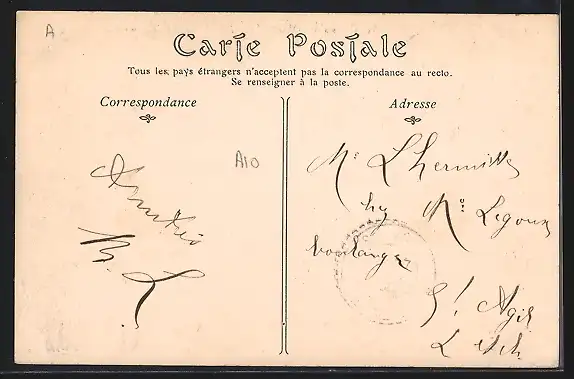 A
Carte Postale
Tous les pays étrangers n'acceptent pas la correspondance au recto.
Se renseigner à la poste.
Correspondance
Adresse
A10
Amitiés
Mr Lhermitte
Mr Legoux
boulanger